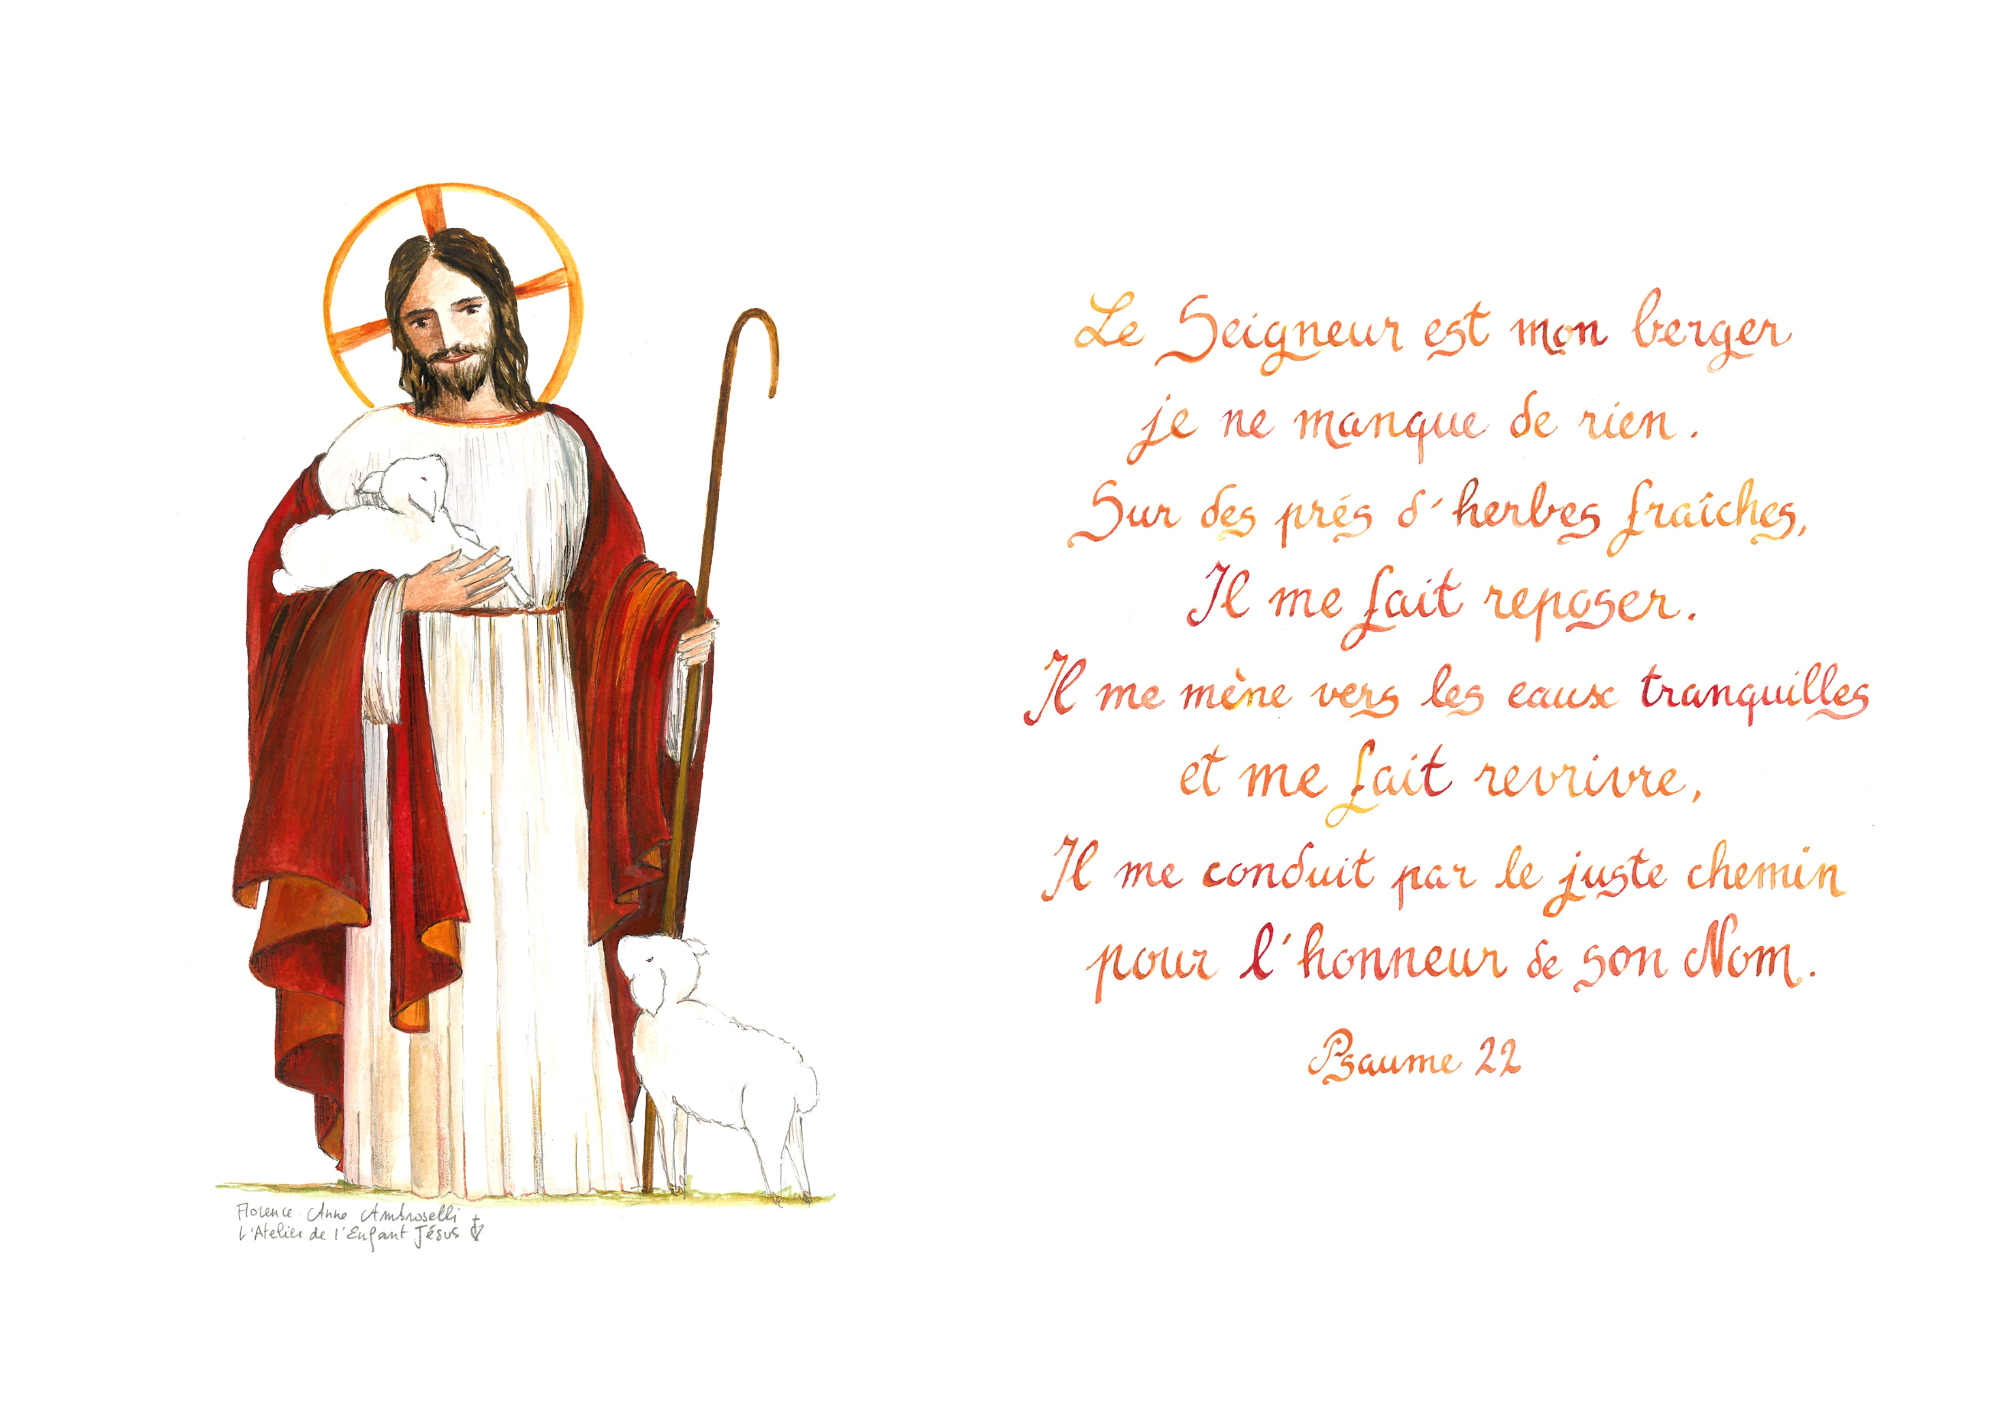 Le Seigneur est mon berger
je ne manque de rien.
Sur des prés d'herbes fraîches,
Il me fait reposer.
Il me mène vers les eaux tranquilles
et me fait revrivre,
Il me conduit par le juste chemin
pour l'honneur de son Nom.
Psaume 22
Florence Anne Ambroselli
L'Atelier de l'Enfant Jésus